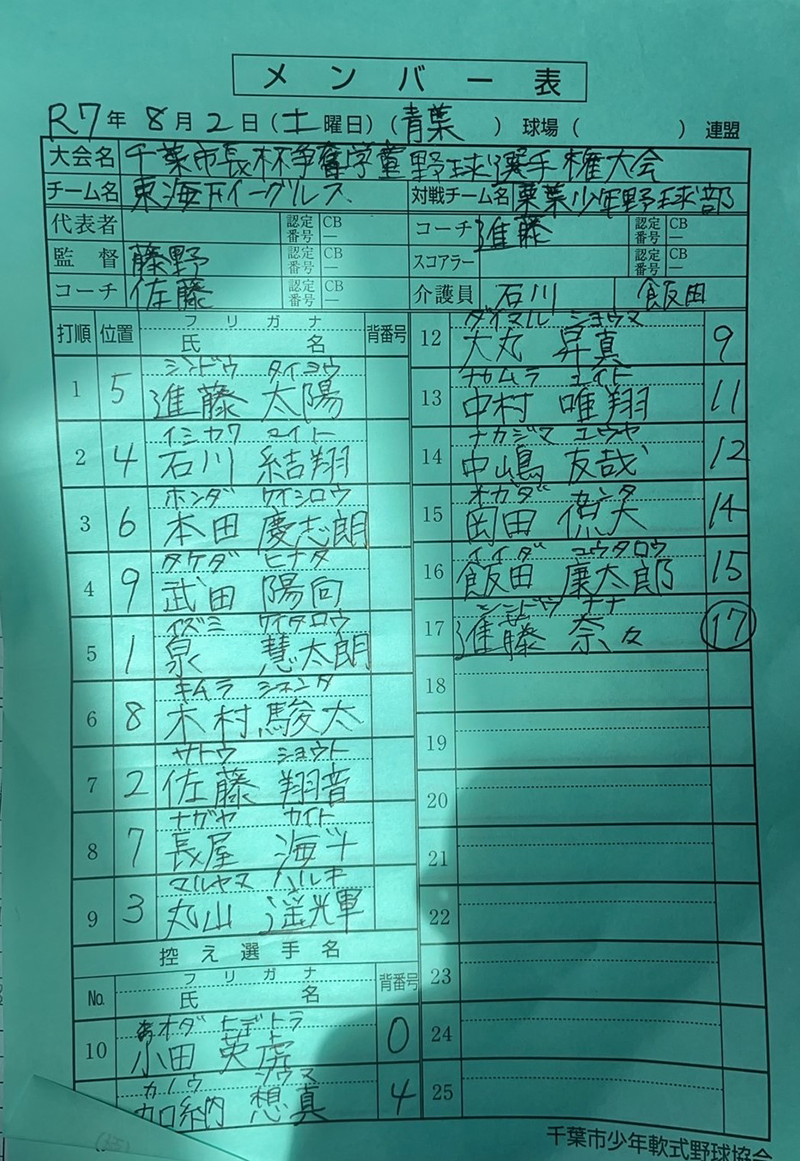 メンバー表
R7年 8月 2日(土曜日)(青葉 )球場( )連盟
大会名 千葉市長杯争奪学童野球選手権大会
チーム名 東海下イーグルス 対戦チーム名 栗葉少年野球部
代表者 認定番号 CB — コーチ 進藤 認定番号 CB —
監督 藤野 認定番号 CB — スコアラー 認定番号 CB —
コーチ 佐藤 認定番号 CB — 介護員 石川 飯田
打順 位置 フリガナ 氏名 背番号
1 5 シンドウ タイヨウ 進藤 太陽
2 4 イシカワ ユイト 石川 結翔
3 6 ホンダ ケイシロウ 本田 慶志朗
4 9 タケダ ヒナタ 武田 陽向
5 1 イズミ ケイタロウ 泉 慧太朗
6 8 キムラ シュンタ 木村 駿太
7 2 サトウ ショウト 佐藤 翔音
8 7 ナガヤ カイト 長屋 海斗
9 3 マルヤマ ハルキ 丸山 遥輝
控え選手名
No. フリガナ 氏名 背番号
10 オダ ヒデトラ 小田 英虎 0
カノウ ソウマ 加納 想真 4
12 ダイマル ショウマ 大丸 昇真 9
13 ナカムラ ユイト 中村 唯翔 11
14 ナカジマ ユウヤ 中嶋 友哉 12
15 オカダ 岡田 14
16 イイダ ユウタロウ 飯田 廉太郎 15
17 シンドウ ナナ 進藤 奈々 17
18
19
20
21
22
23
24
25
千葉市少年軟式野球協会